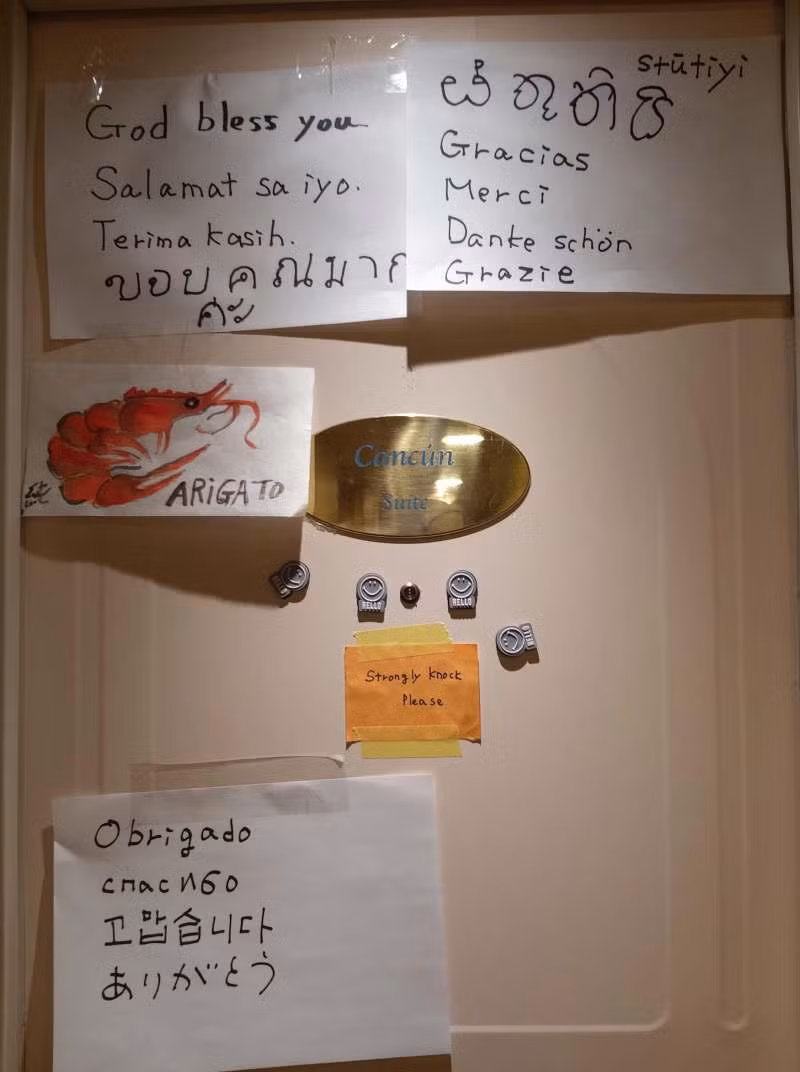 God bless you
Salamat sa iyo.
Terima kasih.
ขอบคุณมาก
ค่ะ
stūtiyi
Gracias
Merci
Danke schön
Grazie
ARiGATO
Cancún
Suite
HELLO
HELLO
Strongly knock
Please
Obrigado
спасибо
고맙습니다
ありがとう